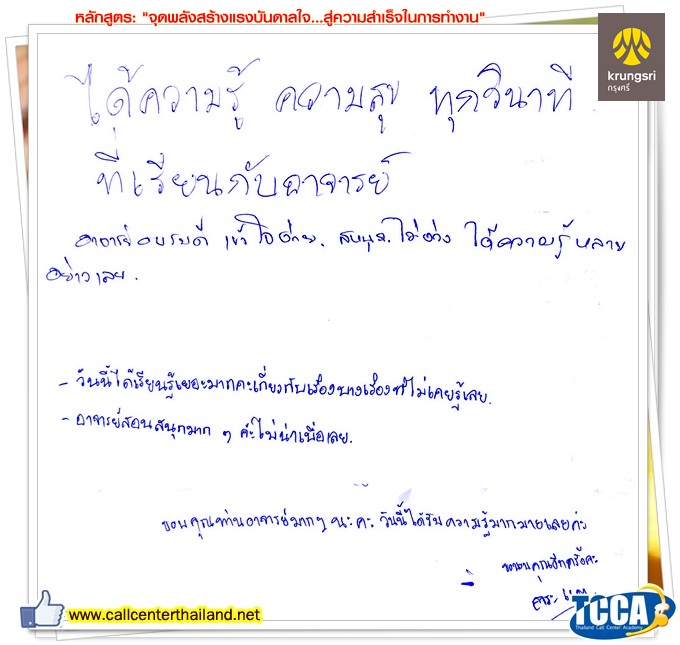 หลักสูตร: "จุดพลังสร้างแรงบันดาลใจ...สู่ความสำเร็จในการทำงาน"
krungsri
กรุงศรี
ได้ความรู้ ความสุข ทุกวินาที
ที่เรียนกับอาจารย์
อาจารย์อบรมดี เข้าใจง่าย. สนุก. ไม่ง่วง ได้ความรู้หลาย
อย่างเลย.
- วันนี้ได้เรียนรู้เยอะมากคะเกี่ยวกับเรื่องบางเรื่องที่ไม่เคยรู้เลย.
- อาจารย์สอนสนุกมาก ๆ ค่ะไม่น่าเบื่อเลย.
ขอบคุณท่านอาจารย์มากๆ นะคะ วันนี้ได้รับความรู้มากมายเลยค่ะ
ขอบคุณอีกครั้งคะ
www.callcenterthailand.net
TCCA
Thailand Call Center Academy